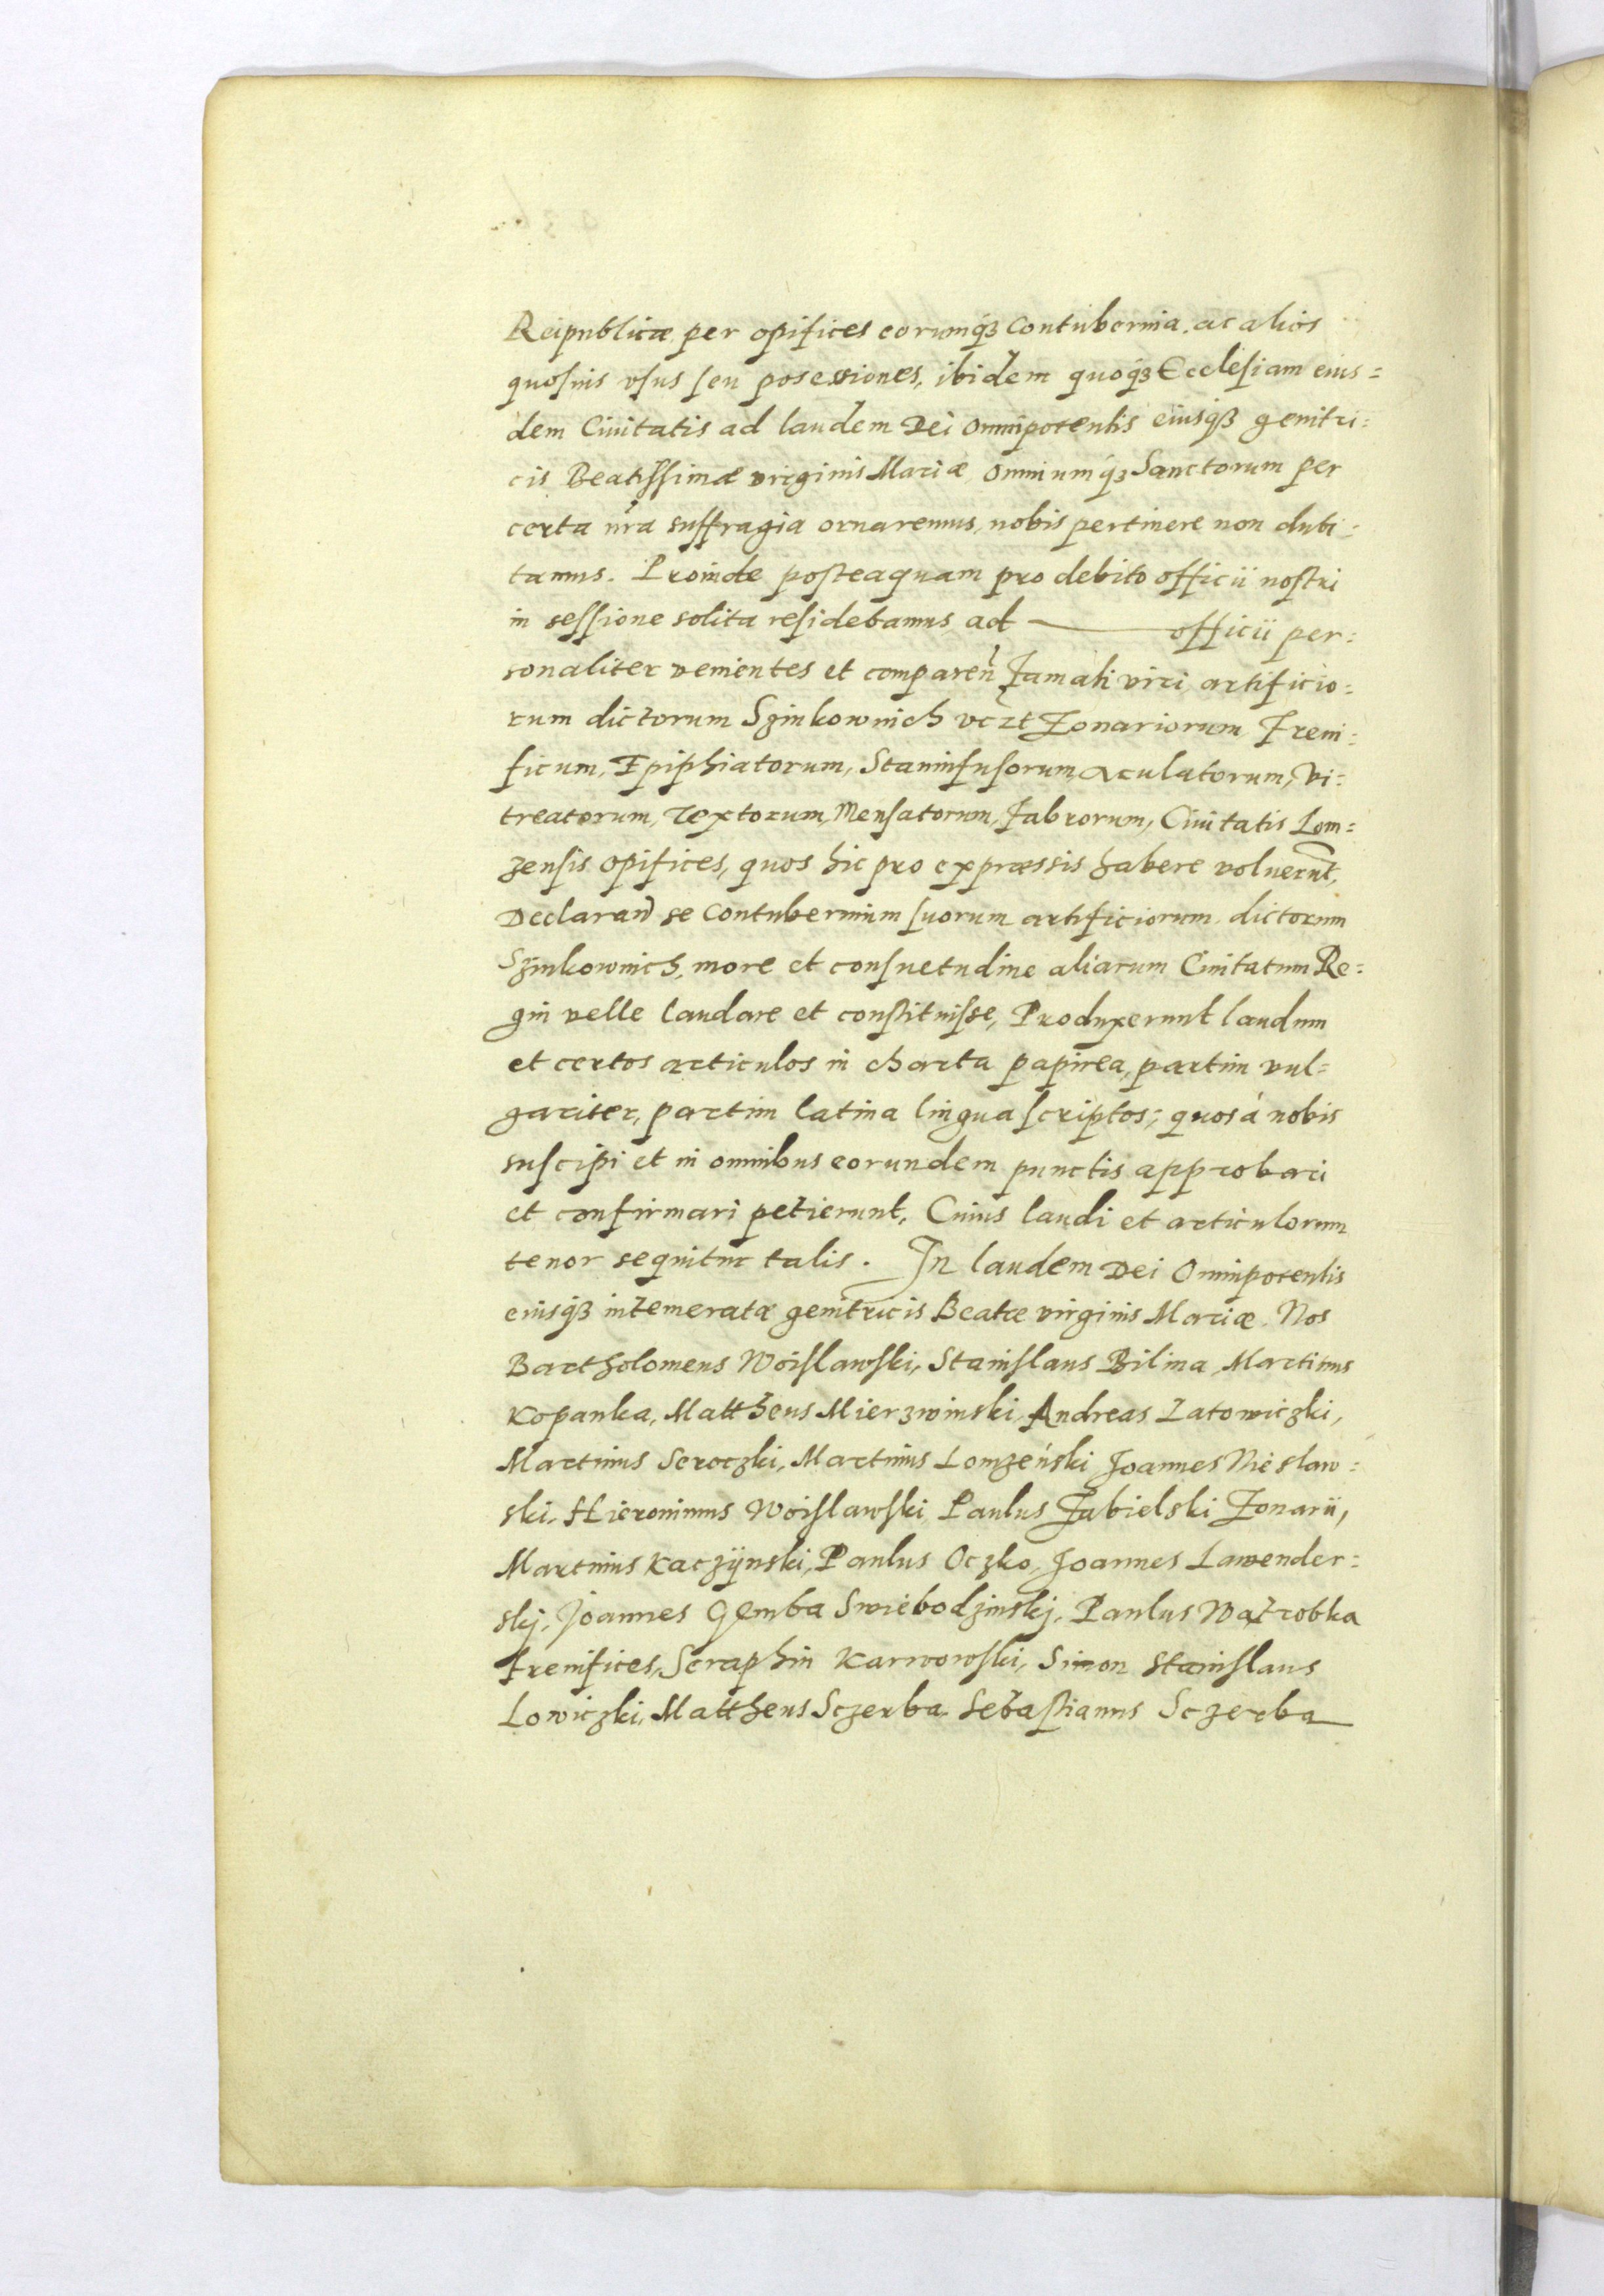 Reipublicæ per opifices eorumq́ꝫ Contubernia. ac alios
quosuis vsus seu posessiones, ibidem quoq́ꝫ Ecclesiam eius=
dem Ciuitatis ad laudem Dei omnipotentis eiusqꝫ genitri=
cis Beatissimæ virginis Mariæ omniumq́ꝫ Sanctorum per
certa nr̃a suffragia ornaremus, nobis pertinere non dubi=
tamus. Proinde posteaquam pro debito officii nostri
in sessione solita residebamus, ad — officii per=
sonaliter venientes et comparen̄ Famati viri artificio=
rum dictorum Szinkownich vczt Zonariorum Freni=
ficum, Epiphiatorum, Stannifusorum, aculatorum, vi=
treatorum, Textorum, Mensatorum, Fabrorum, Ciuitatis Lom=
zensis opifices, quos hic pro expræssis habere voluerūt,
Declaran̄ se Contubernium suorum artificiorum dictorum
Szinkownich, more et consuetudine aliarum Ciuitatum Re=
gni velle laudare et constituisse, Produxerunt laudum
et certos articulos in charta papirea, partim vul=
gariter, partim latina lingua scriptos; quos á nobis
suscipi et in omnibus eorundem punctis approbari
et confirmari petierunt, Cuius laudi et articulorum
tenor sequitur talis. In laudem Dei Omnipotentis
eiusqꝫ intemeratæ genitricis Beatæ virginis Mariæ. Nos
Bartholomeus Woislawski, Stanislaus Bilina, Martinus
Kopanka, Mattheus Mierzwinski, Andreas Latowiczki,
Martinus Seroczki, Martinus Lomzeński Joannes Mieslaw=
ski, Hieronimus Woislawski Paulus Jabielski Zonarii,
Martinus Kaczÿnski, Paulus Oczko, Joannes Lawender=
skj, Joannes Gemba Swiebodzinskj, Paulus Watrobka
Frenifices, Seraphin Karwowski, Simon Stanislaus
Lowiczki, Mattheus Sczerba, Sebastianus Sczerba